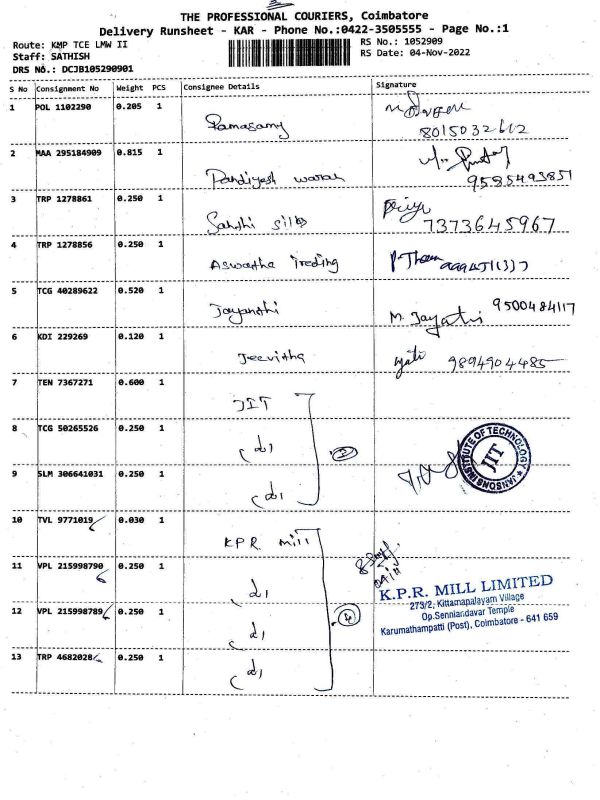 THE PROFESSIONAL COURIERS, Coimbatore
Delivery Runsheet - KAR - Phone No.:0422-3505555 - Page No.:1
Route: KMP TCE LMW II
RS No.: 1052909
Staff: SATHISH
RS Date: 04-Nov-2022
DRS No.: DCJB105290901
S No Consignment No Weight PCS Consignee Details Signature
1 POL 1102290 0.205 1 Ramasamy
8015032602
2 MAA 295184909 0.815 1 Pandiyesh waran
9585493851
3 TRP 1278861 0.250 1 Sakthi silks Priya
7373645967
4 TRP 1278856 0.250 1 Aswatha treding
5 TCG 40289622 0.520 1 Jayanthi M. Jayathi 9500484117
6 KDI 229269 0.120 1 Jeevitha 9894904485
7 TEN 7367271 0.600 1 JIT
8 TCG 50265526 0.250 1
JANSONS INSTITUTE OF TECHNOLOGY
JIT
9 SLM 306641031 0.250 1
10 TVL 9771019 0.030 1 KPR Mill
11 VPL 215998790 0.250 1
K.P.R. MILL LIMITED
273/2, Kittamapalayam Village
12 VPL 215998789 0.250 1 4
Op.Senniandavar Temple
Karumathampatti (Post), Coimbatore - 641 659
13 TRP 4682028 0.250 1